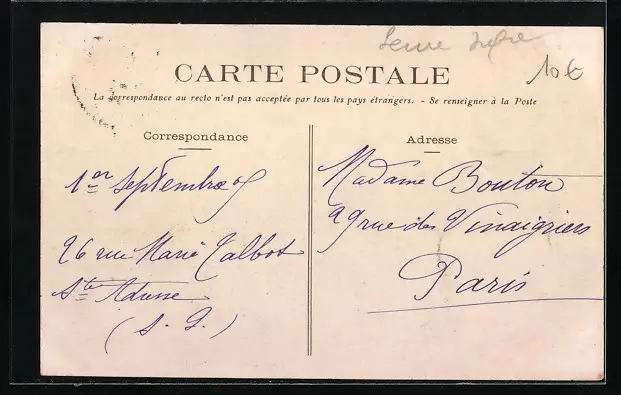 Seine Infre
10€
CARTE POSTALE
La correspondance au recto n'est pas acceptée par tous les pays étrangers. - Se renseigner à la Poste
Correspondance
Adresse
1er Septembre
Madame Bouton
29 rue des Vinaigriers
Paris
26 rue Marie Talbot
Ste Adresse
(S. I.)